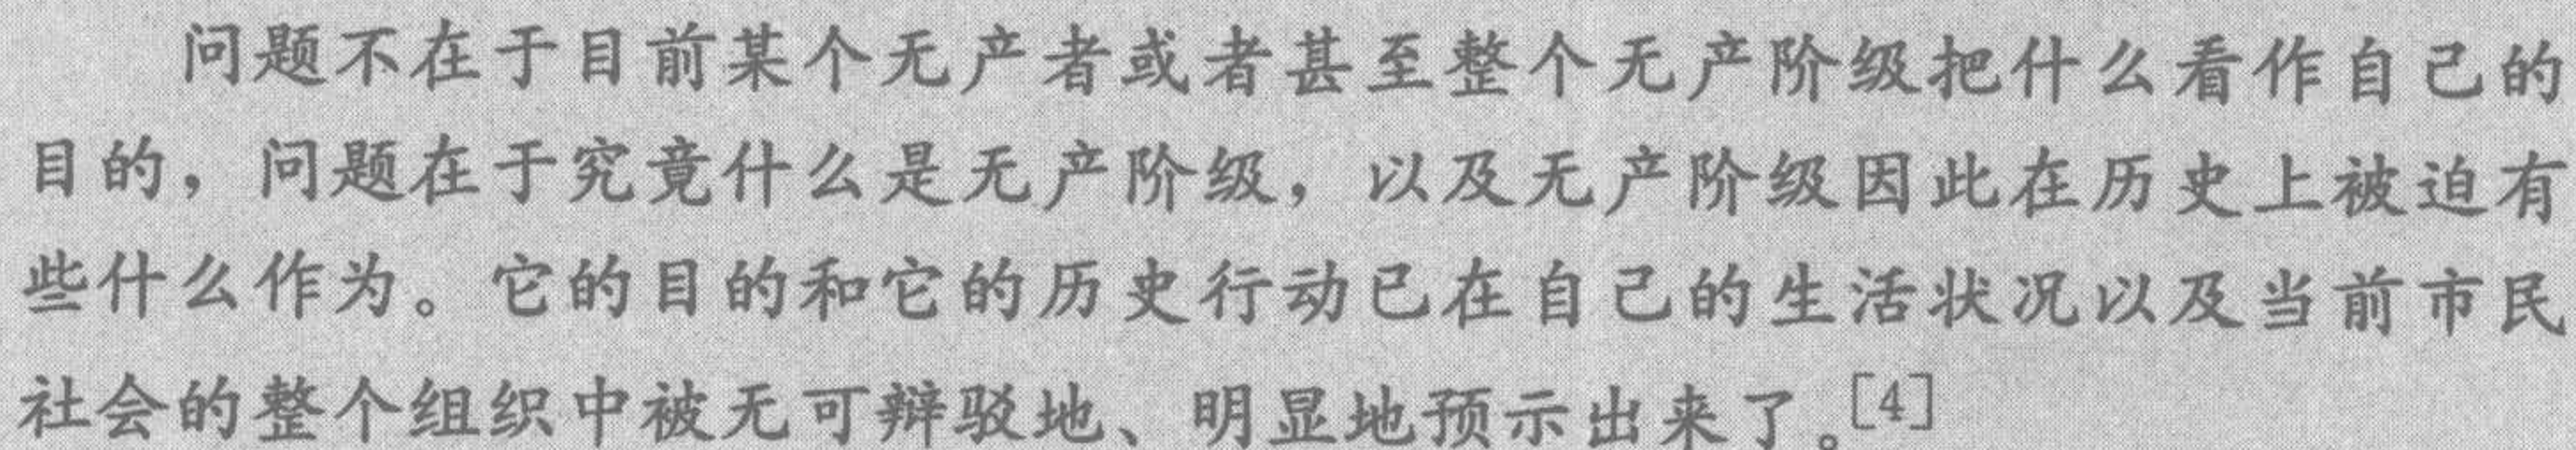 问题不在于目前某个无产者或者甚至整个无产阶级把什么看作自己的
目的，问题在于究竟什么是无产阶级，以及无产阶级因此在历史上被迫有
些什么作为。它的目的和它的历史行动已在自己的生活状况以及当前市民
社会的整个组织中被无可辩驳地、明显地预示出来了。[4]